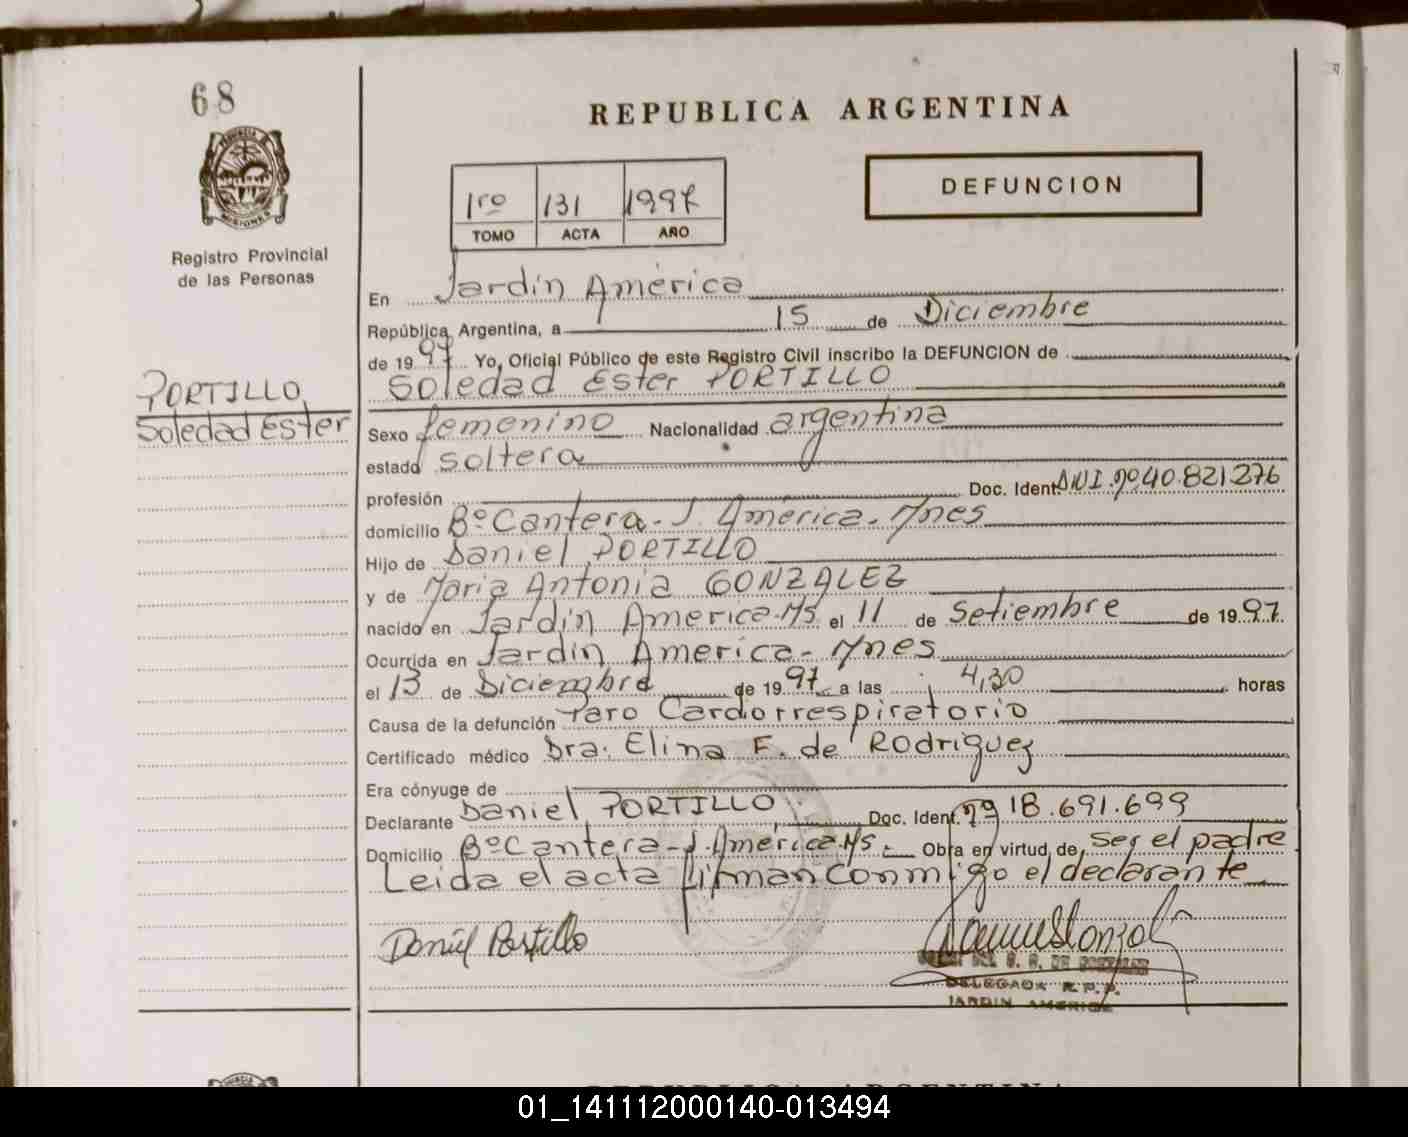 68
REPUBLICA ARGENTINA
PROVINCIA DE MISIONES
Registro Provincial
de las Personas
1ro 131 1997
TOMO ACTA AÑO
DEFUNCION
En Jardín América
República Argentina, a 15 de Diciembre
de 1997 Yo, Oficial Público de este Registro Civil inscribo la DEFUNCION de
Soledad Ester PORTILLO
PORTILLO
Soledad Ester
Sexo femenino Nacionalidad argentina
estado soltera
profesión Doc. Ident. DNI. nº 40.821276
domicilio Bº Cantera - J. América - Mnes
Hijo de Daniel PORTILLO
y de Maria Antonia GONZALEZ
nacido en Jardín America-M/s el 11 de Setiembre de 1997.
Ocurrida en Jardín América - Mnes
el 13 de Diciembre de 1997 a las 4,30 horas
Causa de la defunción Paro Cardiorrespiratorio
Certificado médico Dra. Elina F. de Rodriguez
Era cónyuge de
Declarante Daniel PORTILLO Doc. Ident. nº 18.691.699
Domicilio Bº Cantera - J. América M/s. Obra en virtud de ser el padre
Leida el acta firman conmigo el declarante
Daniel Portillo
DE GONZALEZ
DELEGADA R.P.P.
JARDIN AMERICA
REPUBLICA ARGENTINA
01_141112000140-013494